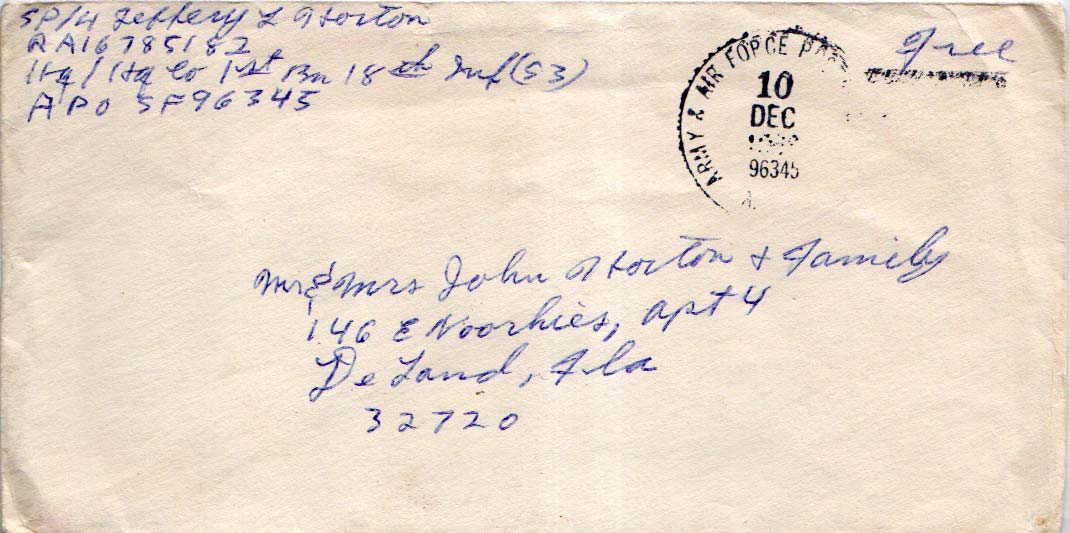 SP/4 Jeffery L Horton
RA16785182
Hq/Hq Co 1st Bn 18th Inf (S3)
APO SF96345
Free
ARMY & AIR FORCE POS
10
DEC
96345
Mr & Mrs John Horton & Family
146 E Voorhies, apt 4
De Land, Fla
32720